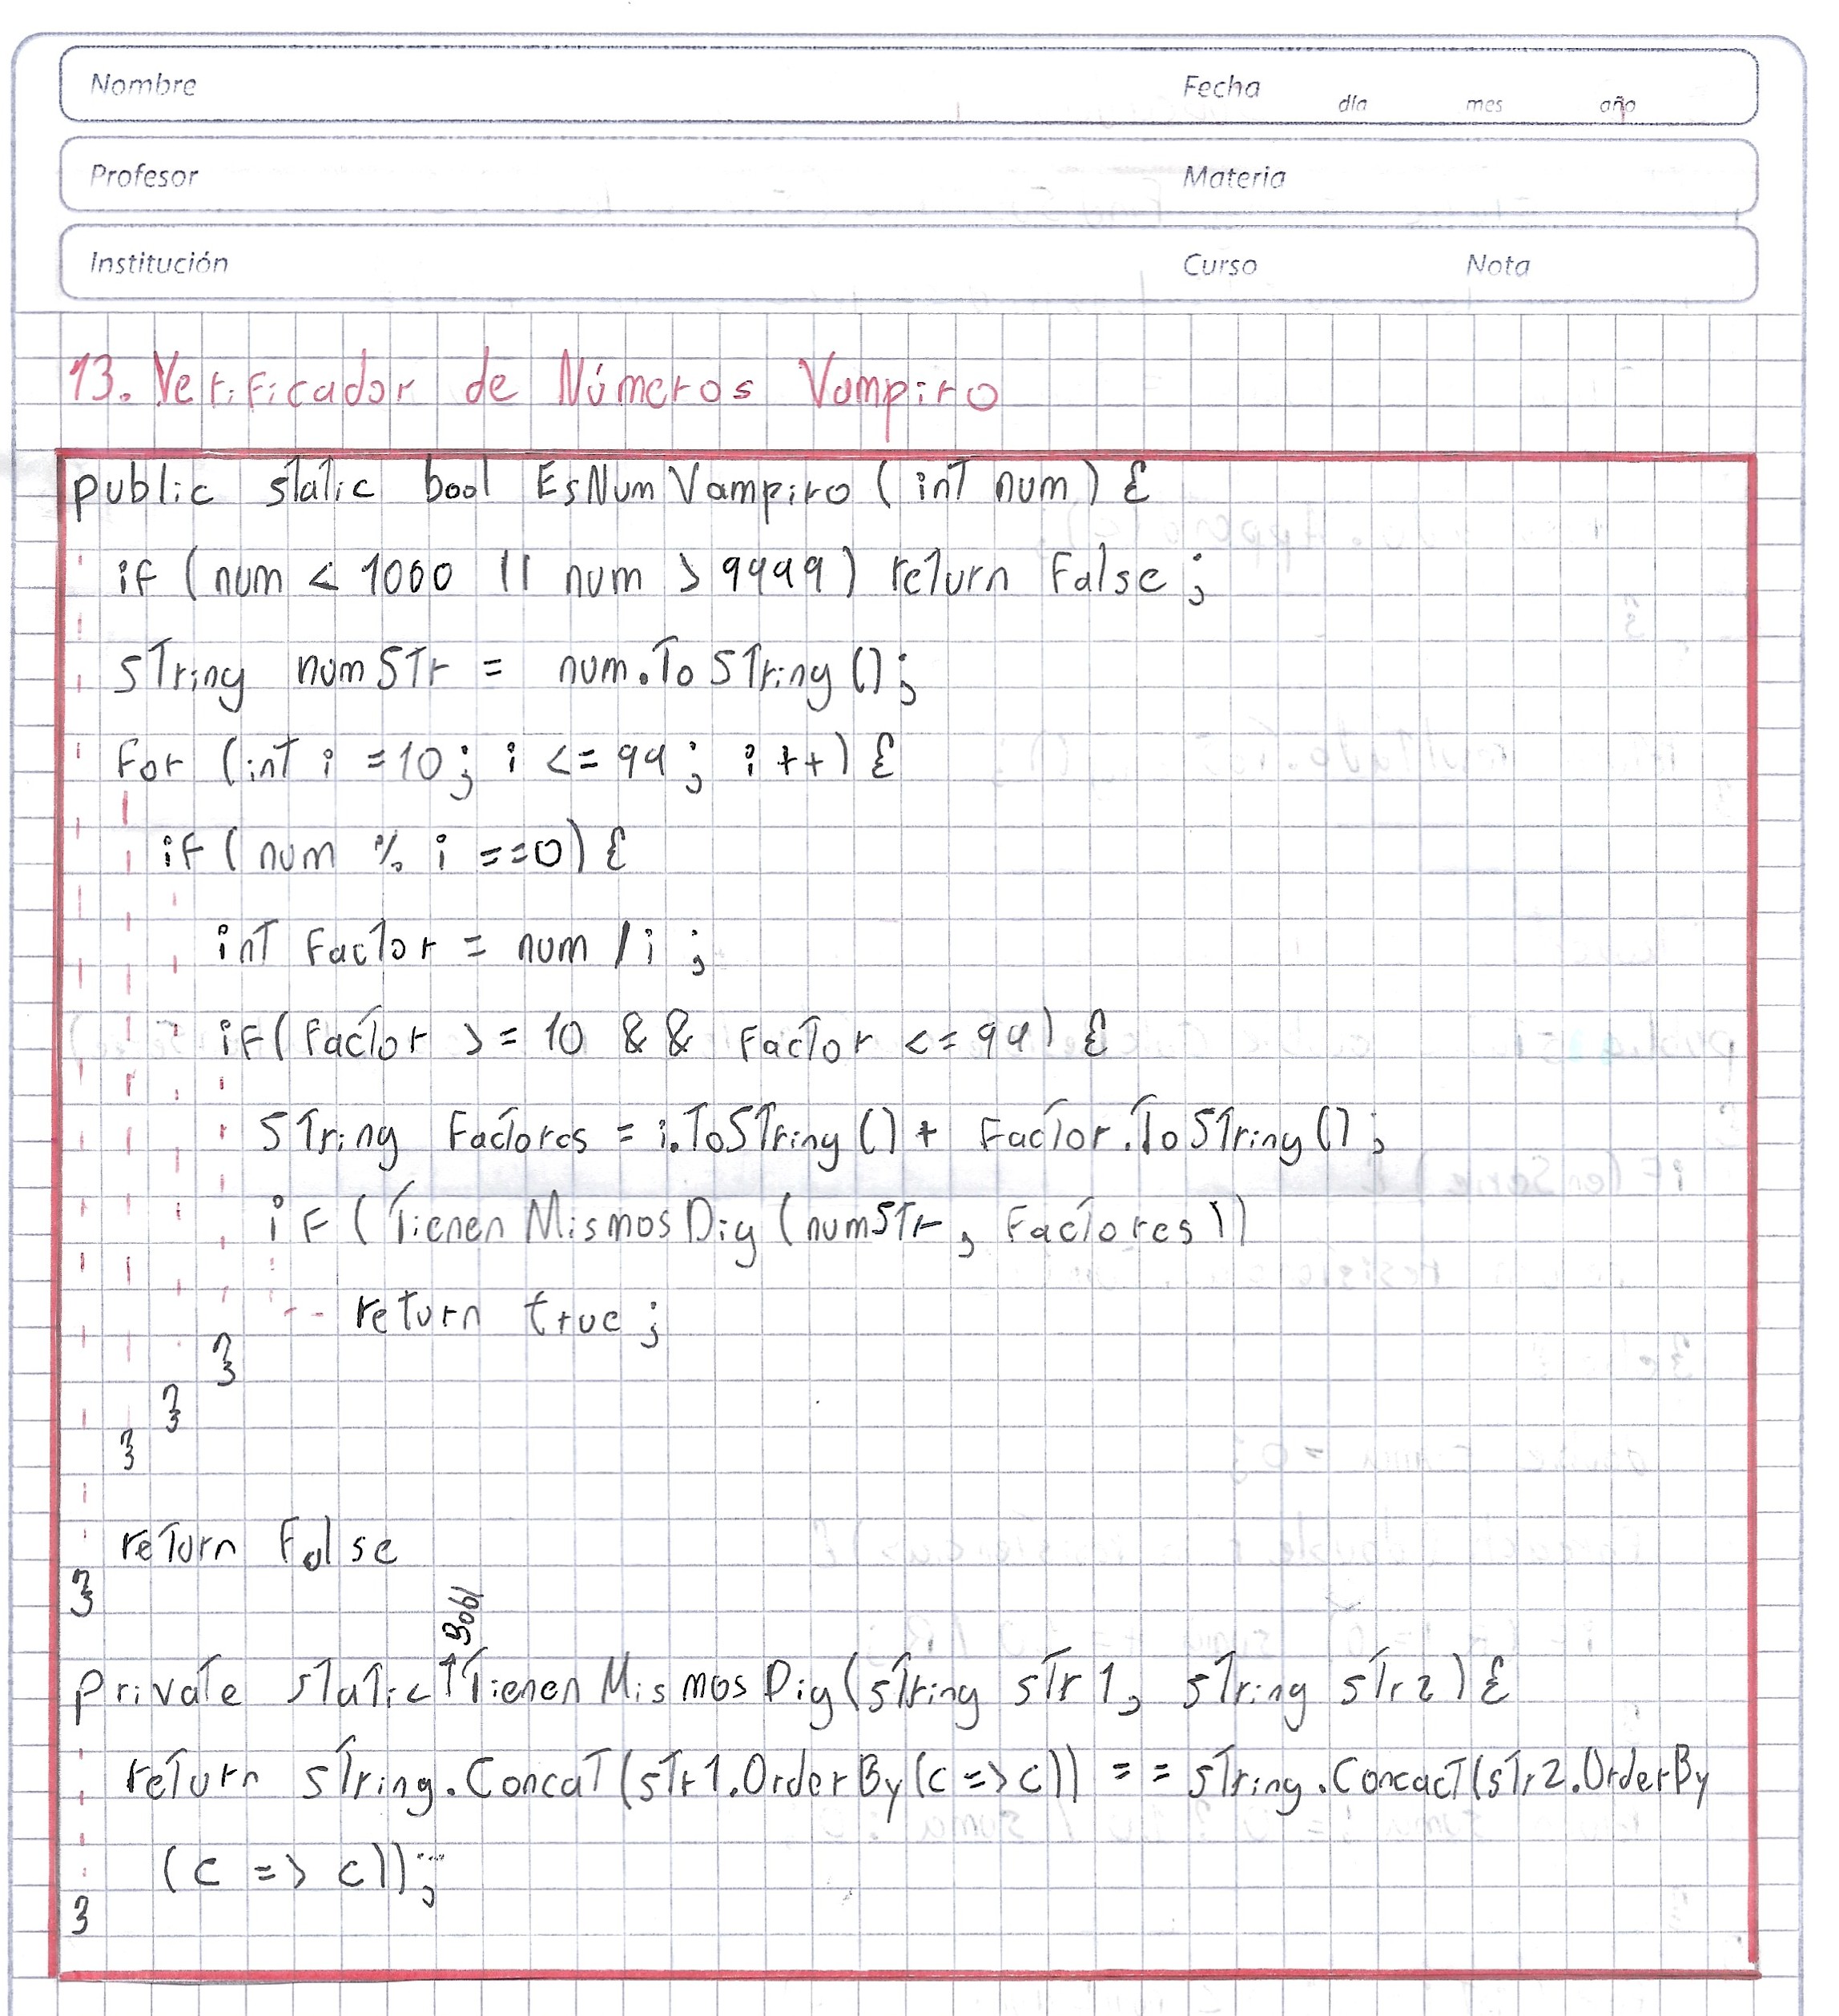 Nombre Fecha día mes año
Profesor Materia
Institución Curso Nota
13. Verificador de Números Vampiro
public static bool EsNumVampiro (int num) {
if (num < 1000 || num > 9999) return False;
string numStr = num.ToString();
For (int i =10; i <= 99; i ++) {
if (num % i ==0) {
int Factor = num / i ;
if (Factor >= 10 && Factor <= 99) {
String Factores = i.ToString() + Factor.ToString();
iF (TienenMismosDig (numStr, Factores))
return true;
}
}
}
return False
}
Bool
private static ↑ TienenMismosDig (string str1, string str2) {
return string.Concat(str1.OrderBy (c => c)) == string.Concact(str2.OrderBy
(c => c));
}